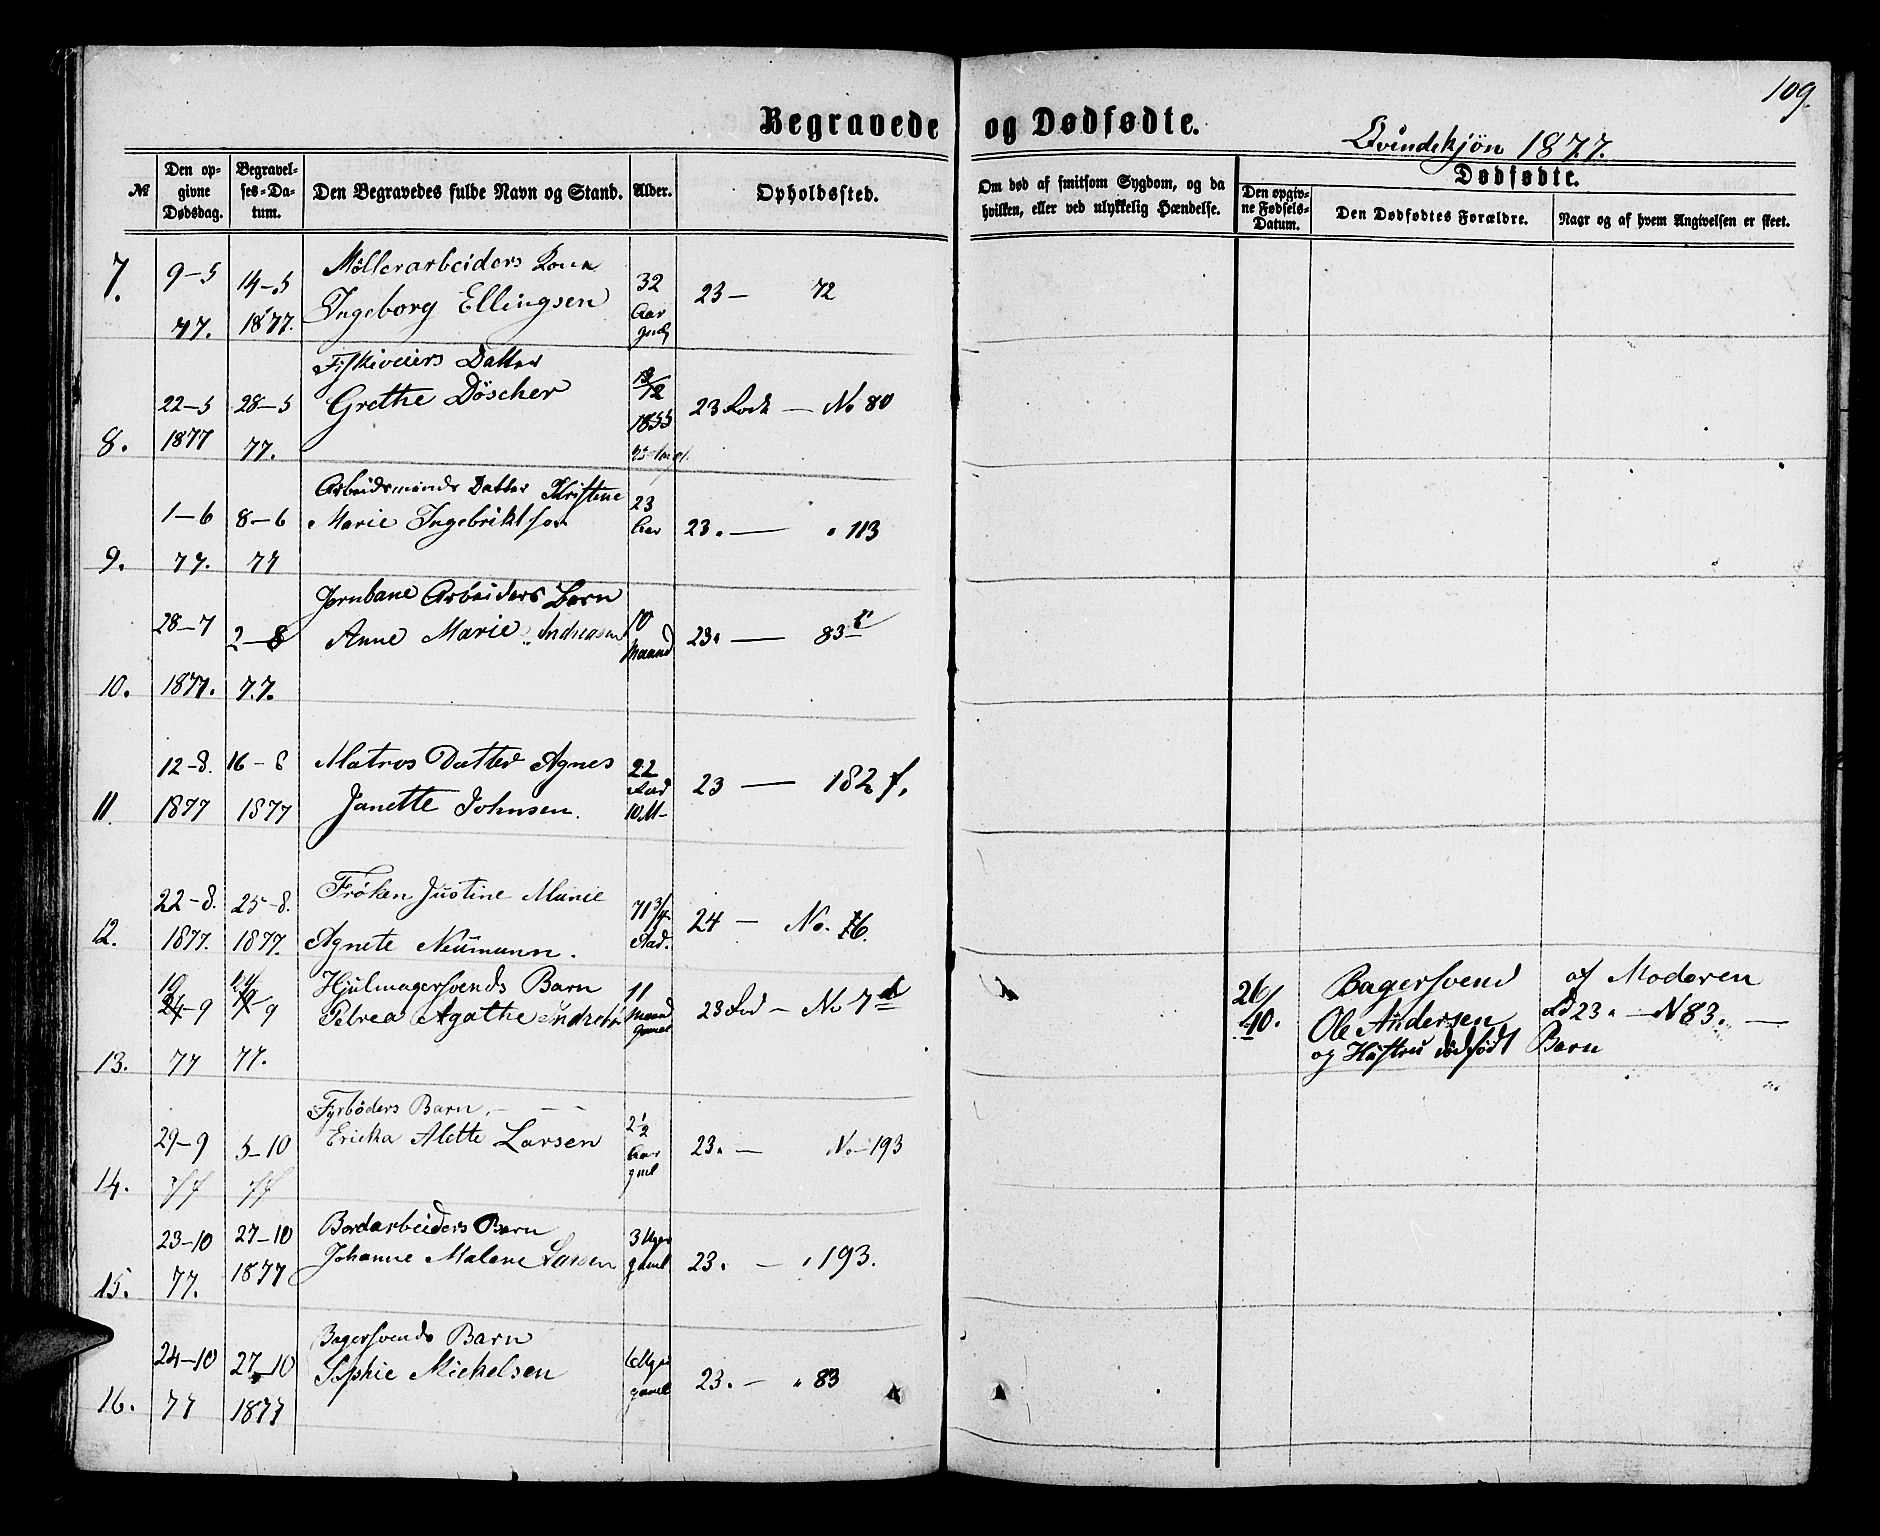 109.
Begravede og Dødfødte.
Qvindekjøn 1877.
№
Den op-
givne
Dødsdag.
Begravel-
ses-Da-
tum.
Den Begravedes fulde Navn og Stand.
Alder.
Opholdssted.
Om død af smitsom Sygdom, og da
hvilken, eller ved ulykkelig Hændelse.
Dødfødte.
Den opgiv-
ne Fødsels-
Datum.
Den Dødfødtes Forældre.
Naar og af hvem Angivelsen er skeet.
7.
9-5
77.
14-5
1877.
Möllerarbeiders Kone
Ingeborg Ellingsen
32
Aar
23 — 72
8.
22-5
1877
28-5
77.
Datter
Grethe Döscher
12
1855
23 Rode — No 80
9.
1-6
77.
8-6
77
Arbeidsmands Datter Kristine
Marie
23
Aar
23. — " 113
10.
28-7
1877.
2-8
77.
Jernbane Arbeiders Barn
Anne Marie Andreasen
10
Maaned
23. — 83
11.
12-8.
1877
16-8
1877
Matros Datter Agnes
Janette Johnsen.
22
Aar
10 M-
23 — 182 f.
12.
22-8.
1877.
25-8.
1877.
Fröken Justine Marie
Agnete Neumann.
71 3/4
Aar.
24 — No. 16.
13.
9
77
9
77.
Hjulmagersvends Barn
Petrea Agathe
11
Maand
23 Rod — No 7 d
26/10.
Bagersvend
Ole Andersen
og Hustru dödfödt Barn
af Moderen
Rd 23. — N 83. —
14.
29-9
77
5-10
77
Fyrböders Barn
Ericka Alette Larsen
2 1/2
Aar
gml
23. — No 193
15.
23-10
77.
27-10
1877
Bordarbeiders Barn
Johanne Malene Larsen
3 Uger
gaml
23. — " 193.
16.
24-10
77
27-10
1877
Bagersvends Barn
Sophie Mickelsen
6 Uger
gaml
23. — " 83